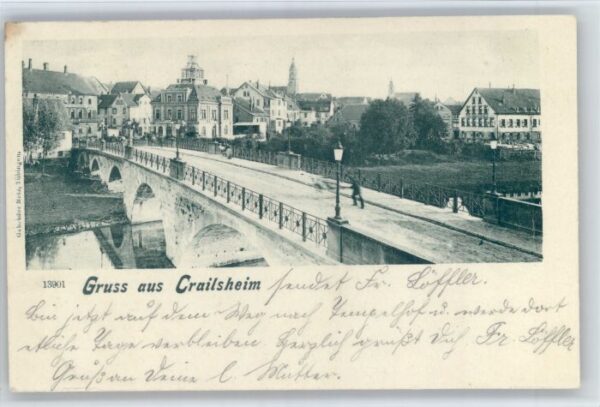 Gebrüder Metz, Tübingen.
13901 Gruss aus Crailsheim sendet Fr. Löffler.
Bin jetzt auf dem Weg nach Tempelhof u. werde dort
etliche Tage verbleiben. Herzlich grüßt Dich Fr. Löffler
Gruß an Deine l. Mutter.